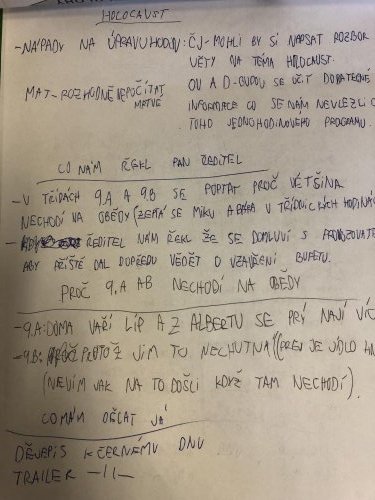 HOLOCAUST
- NÁPADY NA ÚPRAVU HODIN: ČJ - MOHLI BY SI NAPSAT ROZBOR
VĚTY NA TÉMA HOLOCAUST.
MAT - ROZHODNĚ NEPOČÍTAT
MRTVÉ
OV A D - BUDOU SE UČIT DODATEČNÉ
INFORMACE CO SE NÁM NEVLEZLI DO
TOHO JEDNOHODINOVÉHO PROGRAMU.
CO NÁM ŘEKL PAN ŘEDITEL
- V TŘÍDÁCH 9.A A 9.B SE POPTAT PROČ VĚTŠINA
NECHODÍ NA OBĚDY (ZEPTÁ SE MIKU A BÁRA V TŘÍDNICKÝCH HODINÁCH
- ŘEDITEL NÁM ŘEKL ŽE SE DOMLUVÍ S PROVOZOVATE
ABY PŘÍŠTĚ DAL DOPŘEDU VĚDĚT O UZAVŘENÍ BUFETU.
PROČ 9.A AB NECHODÍ NA OBĚDY
- 9.A: DOMA VAŘÍ LÍP A Z ALBERTU SE PRÝ NAJÍ VÍC
- 9.B: PROTOŽ JIM TO NECHUTNÁ (PRÝ JE JÍDLO
(NEVÍM JAK NA TO DOŠLI KDYŽ TAM NECHODÍ).
CO MÁM DĚLAT JÁ
DĚJEPIS K ČERNÉMU DNU
TRAILER -||-